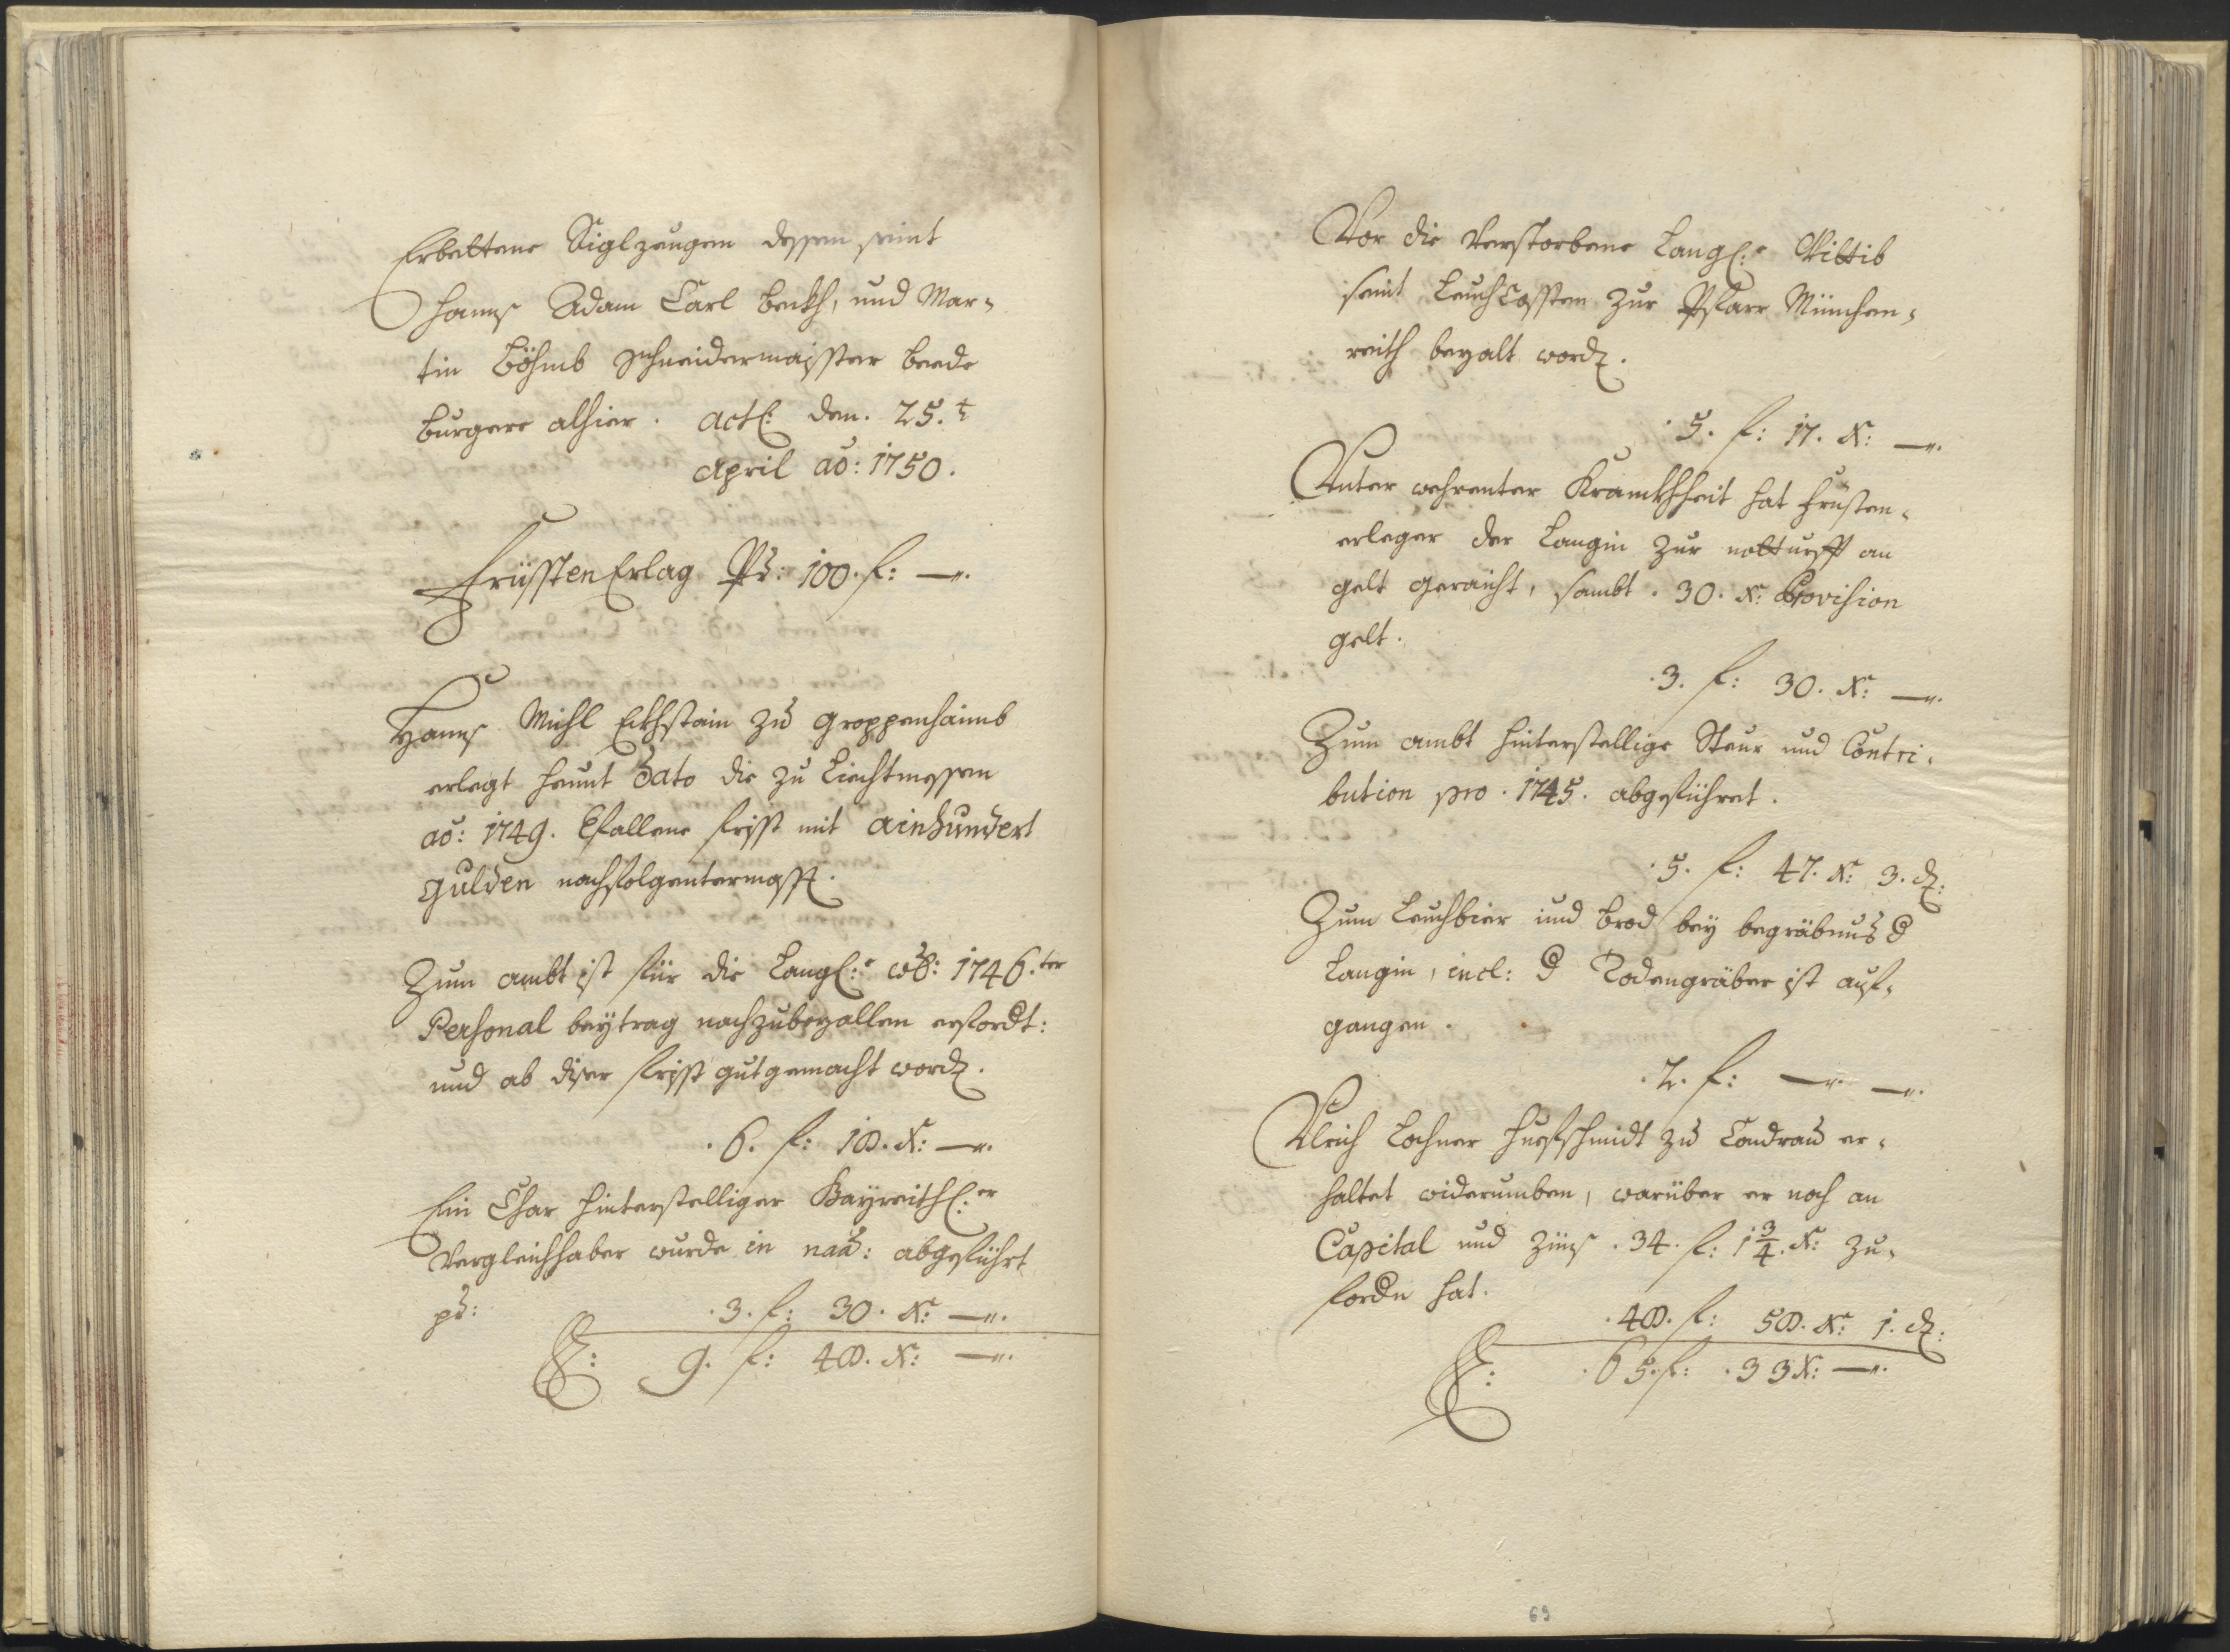 Erbettene Siglzeugen dessen seint
Hannß Adam Carl Beckh, und Mar=
tin Böhmb Schneidermaister beede
burgere alhier. Actl: den. 25.t
April ao: 1750.
Früssten Erlag Pr: 100. f: —„.
Hannß Michl Eckhstain zu Groppenhaimb
erlegt heunt Dato die zu Liechtmessen
ao: 1749. Efallene frisst mit ainhundert
gulden nachfolgentermasst.
Zum ambt ist für die Langl:e 1746.ter
Personal beytrag nachzubezallen erfordt:
und ab diser frisst gutgemacht word.
.6. f: 10. x: —„.
Ein Char hinterstelliger Bayreithl:er
Vergleichhaber wurde in naã: abgeführt
pr: .3. f: 30. x: —„.
9. f: 40. x: —„.
Vor die verstorbene Langl:e Wittib
seint Leuchcossten zur Pfarr München=
reith bezalt word.
.5. f: 17. x: —„.
Unter wehrenter Krankhheit hat Früsten=
erleger der Langin zur notturfft an
gelt geraicht, sambt .30. x: Provision
gelt.
.3. f: 30. x: —„.
Zum ambt hinterstellige Steur und Contri=
bution pro .1745. abgeführet.
.5. f: 47. x: 3. d:
Zum Leuchbier und Brod bey begräbnus d
Langin, incl: d Todengräber ist auf=
gangen.
.2. f: —„. —„.
Ulrich Lochner Huefschmidt zu Condrau er=
haltet widerumben, warüber er noch an
Capital und Zünß .34. f: 1 3/4. x: zu=
fordn hat.
.40. f: 50. x: 1. d:
.65. f: .33 x: —„.
69